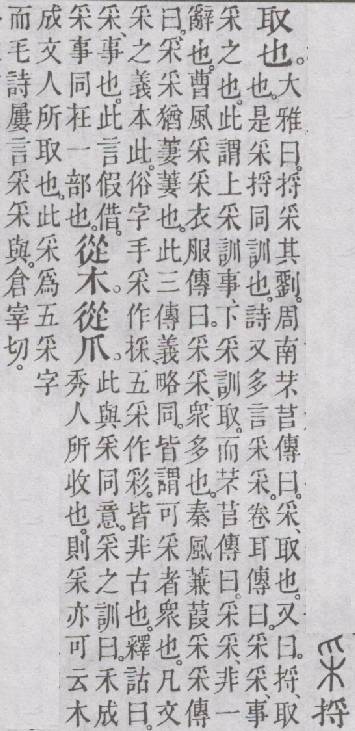 采捋
取也。
大雅曰。捋采其劉。周南芣苢傳曰。采、取也。又曰。捋、取
也。是采捋同訓也。詩又多言采采。卷耳傳曰。采采、事
采之也。此謂上采訓事、下采訓取。而芣苢傳曰。采采、非一
辭也。曹風采采衣服傳曰。采采、衆多也。秦風蒹葭采采傳
曰。采采猶萋萋也。此三傳義略同。皆謂可采者衆也。凡文
采之義本此。俗字手采作採、五采作彩。皆非古也。釋詁曰。
采、事也。此言假借。
采事同在一部也。
從木。從爪。
此與采同意。采之訓曰。禾成
秀人所收也。則采亦可云木
成文人所取也。此采爲五采字
而毛詩屢言采采與。倉宰切。